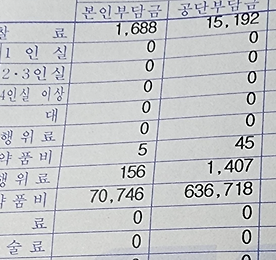 본인부담금 공단부담금
찰 료 1,688 15,192
1 인 실 0 0
2·3인실 0 0
4인실 이상 0 0
대 0 0
행위료 0 0
약품비 5 45
행위료 156 1,407
약품비 70,746 636,718
료 0 0
술료 0 0